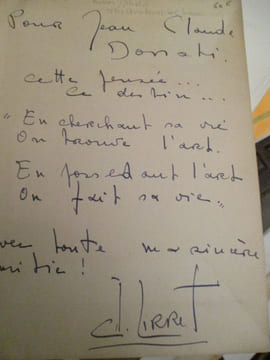 Pour Jean Claude
Donati.
cette pensée...
ce destin...
"En cherchant sa vie
On trouve l'art.
En possedant l'art
On fait sa vie."
toute ma sincère
mitié!